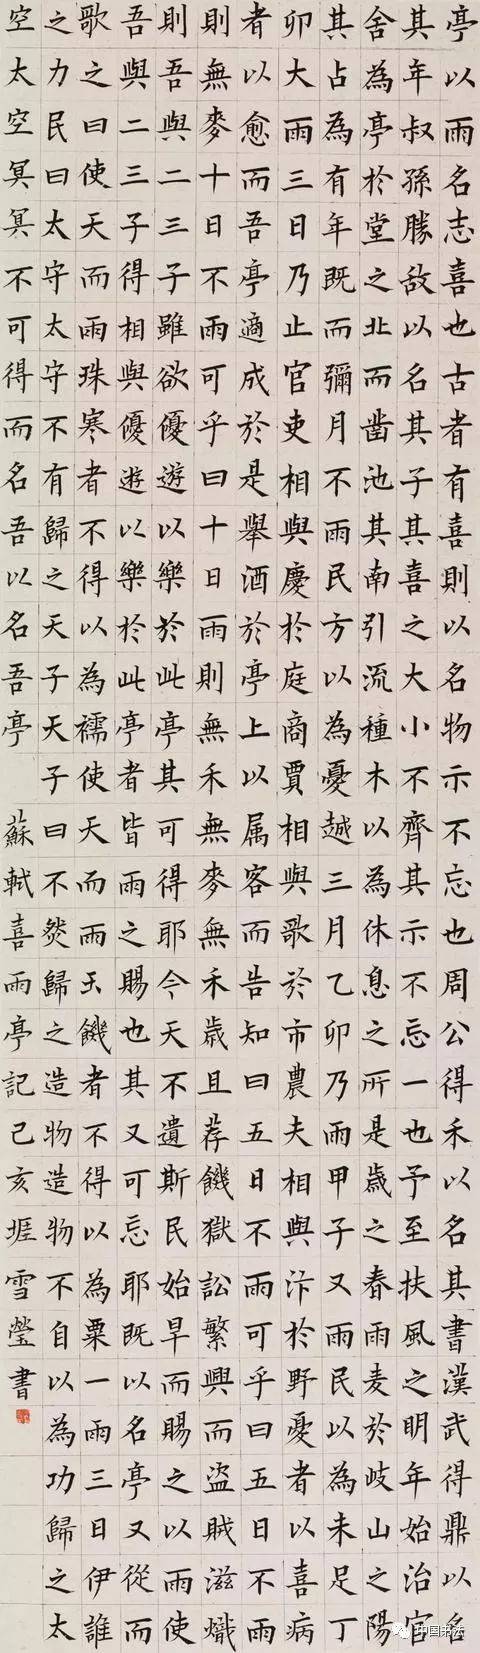 亭以雨名志喜也古者有喜則以名物示不忘也周公得禾以名其書漢武得鼎以名
其年叔孫勝敵以名其子其喜之大小不齊其示不忘一也予至扶風之明年始治官
舍為亭於堂之北而凿池其南引流種木以為休息之所是歲之春雨麦於岐山之陽
其占為有年既而彌月不雨民方以為憂越三月乙卯乃雨甲子又雨民以為未足丁
卯大雨三日乃止官吏相與慶於庭商賈相與歌於市農夫相與汴於野憂者以喜病
者以愈而吾亭適成於是舉酒於亭上以属客而告知曰五日不雨可乎曰五日不雨
則無麥十日不雨可乎曰十日雨則無禾無麥無禾歲且荐饑獄訟繁興而盜賊滋熾
則吾與二三子雖欲優遊以樂於此亭其可得耶今天不遺斯民始旱而賜之以雨使
吾與二三子得相與優遊以樂於此亭者皆雨之賜也其又可忘耶既以名亭又從而
歌之曰使天而雨珠寒者不得以為襦使天而雨玉饑者不得以為粟一雨三日伊誰
之力民曰太守太守不有歸之天子天子曰不然歸之造物造物不自以為功歸之太
空太空冥冥不可得而名吾以名吾亭 蘇軾喜雨亭記己亥堐雪瑩書
中国书法